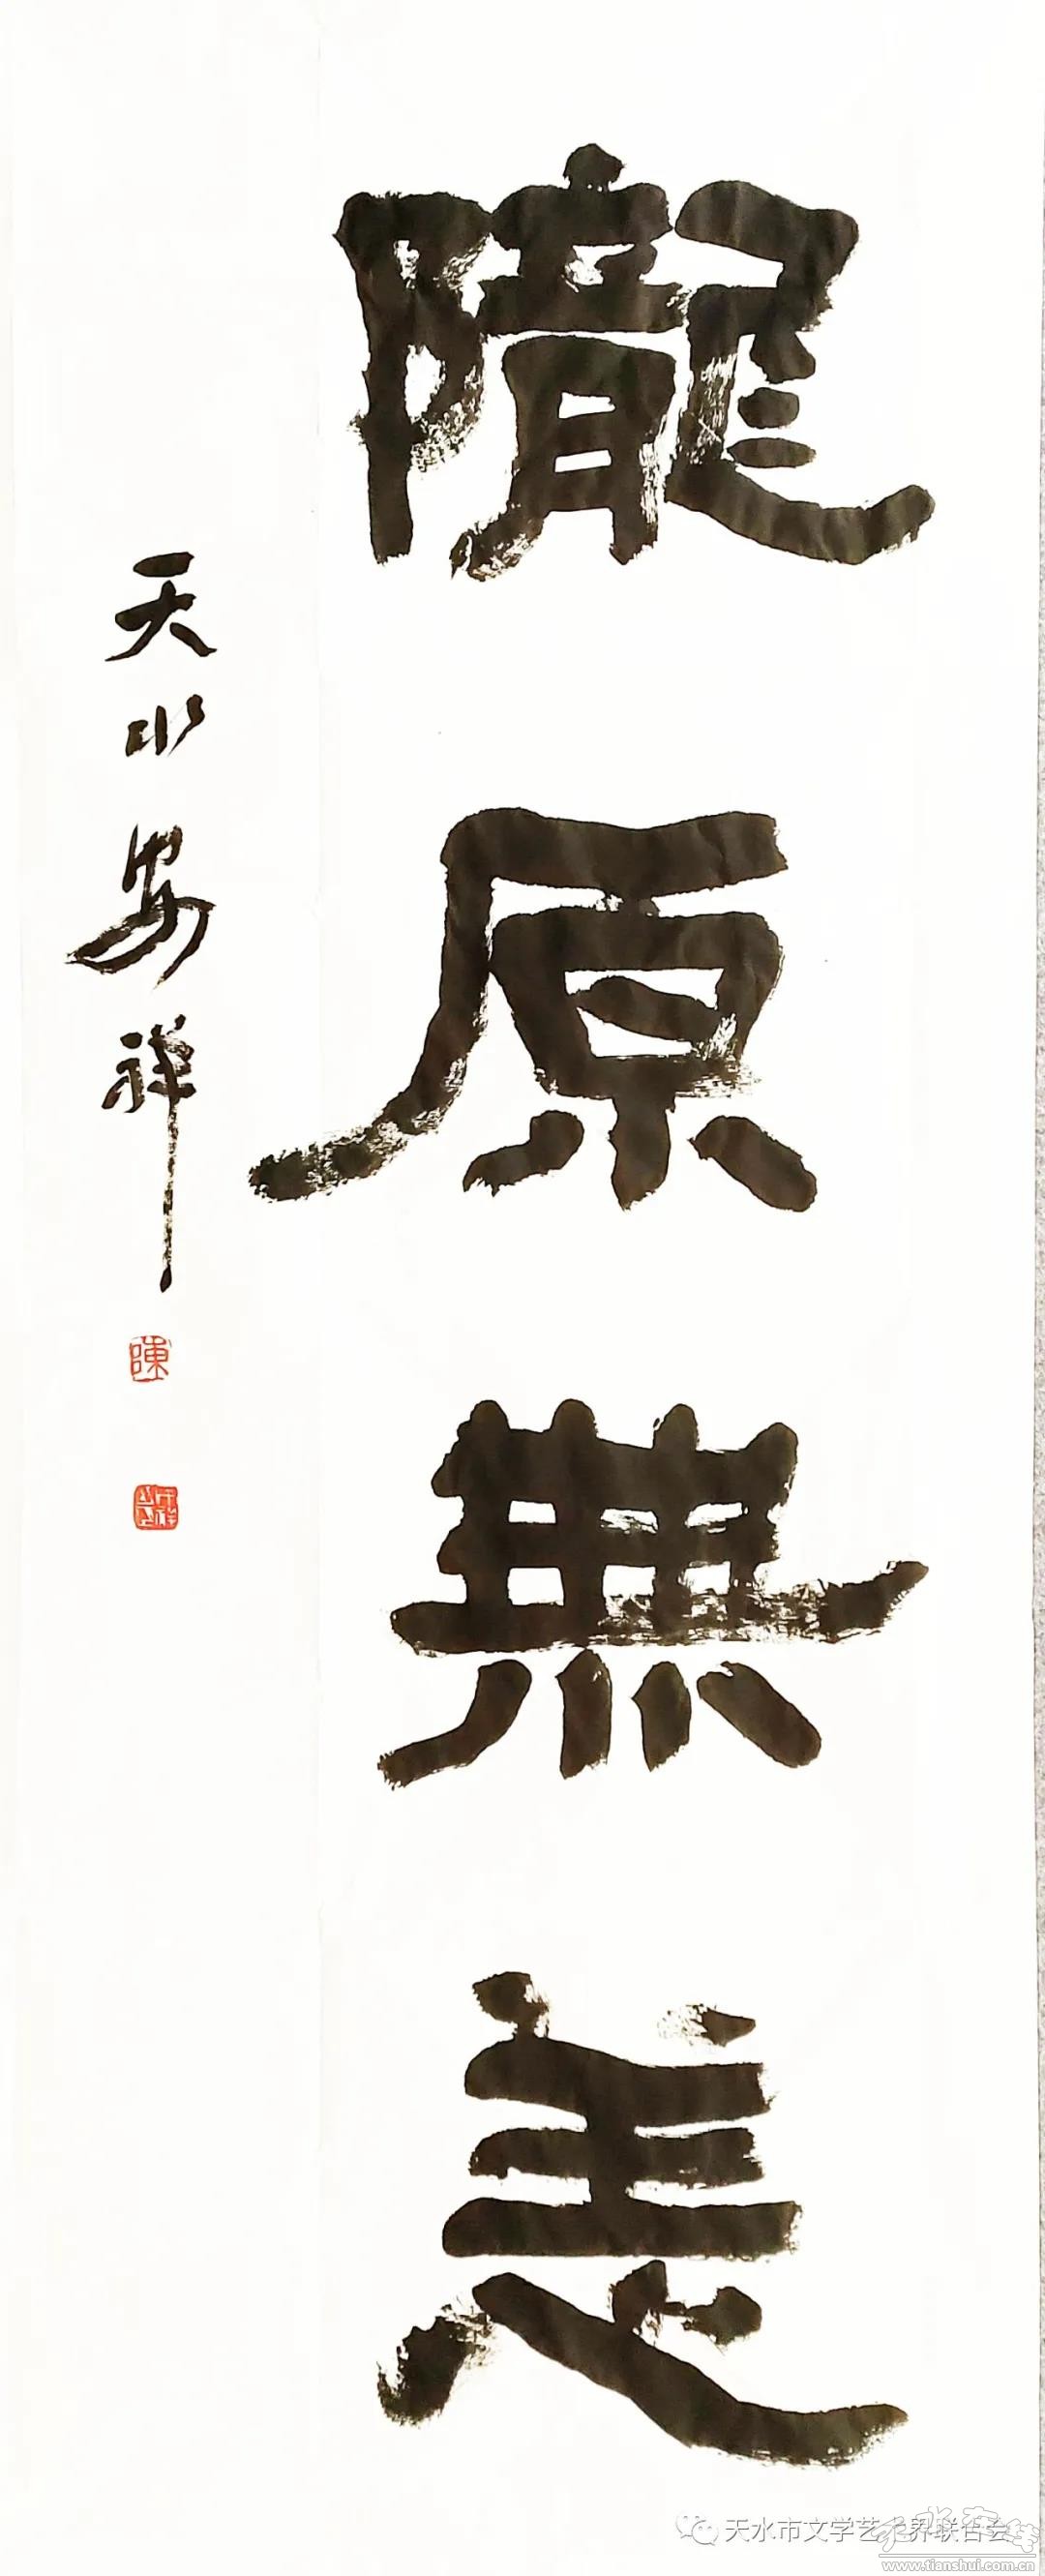 隴原無恙
天水安祥
陳
天水市文学艺术界联合会
天水在线
www.tianshui.com.cn